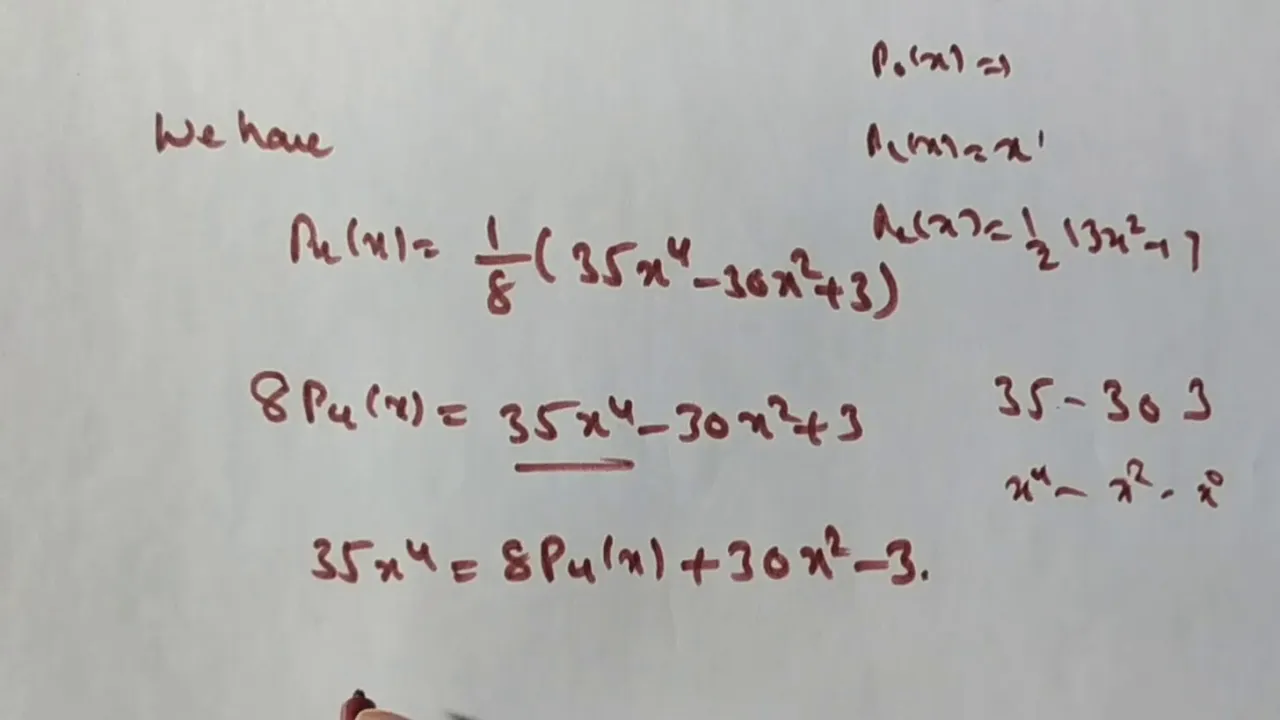 P₀(x) = 1
We have
P₁(x) = x¹
P₄(x) = 1/8 (35x⁴ - 30x² + 3)
P₂(x) = 1/2 (3x² - 1)
8P₄(x) = 35x⁴ - 30x² + 3
35 - 30 3
x⁴ - x² - x⁰
35x⁴ = 8P₄(x) + 30x² - 3.